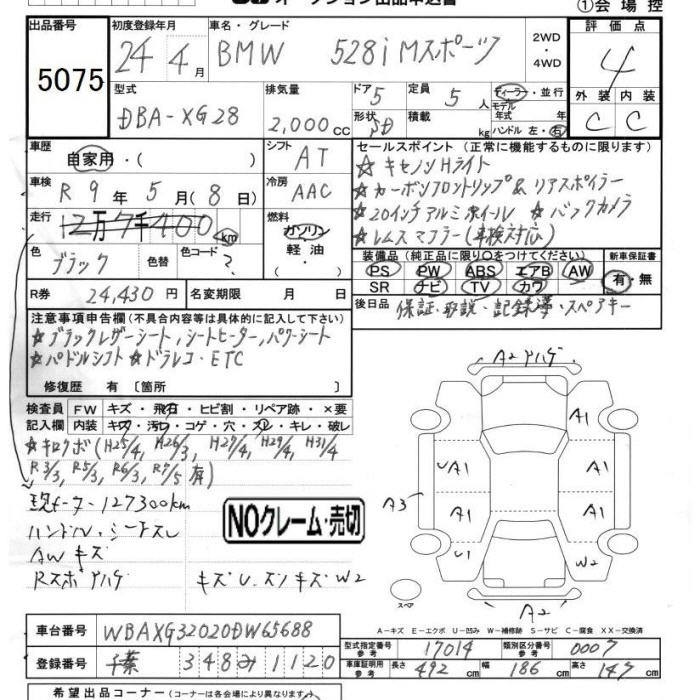 オークション出品申込書
①会場控
出品番号
5075
初度登録年月
24年4月
車名・グレード
BMW 528i Mスポーツ
2WD
・
4WD
評価点
4
外装 内装
C C
型式
DBA-XG28
排気量
2,000cc
ドア 5
形状
定員 5人
積載 kg
ディーラー・並行
モデル年式 年
ハンドル 左・右
車歴
自家用・( )
シフト
AT
車検
R9年5月(8日)
冷房
AAC
走行
12万7千400km
燃料
ガソリン
軽油
( )
色
ブラック
色替
色コード
?
R券 24,430円
名変期限 月 日
セールスポイント(正常に機能するものに限ります)
☆キセノンHライト
☆カーボンフロントリップ& リアスポイラー
☆20インチアルミホイール ☆バックカメラ
☆レムスマフラー(車検対応)
装備品(純正品に限り○をつけてください)
PS PW ABS エアB AW
SR ナビ TV カワ
新車保証書
有・無
後日品
保証・取説・記録簿・スペアキー
注意事項申告欄(不具合内容等は具体的に記入して下さい)
☆ブラックレザーシート,シートヒーター,パワーシート
☆パドルシフト ☆ドラレコ・ETC
修復歴 有〔箇所 〕
検査員 FW キズ・飛石・ヒビ割・リペア跡・×要
記入欄 内装 キズ・汚レ・コゲ・穴・スレ・キレ・破レ
☆キロクボ(H25/4, H26/3, H27/4, H29/4, H31/4
R3/3, R5/3, R6/3, R7/5 有)
現メータ・127300km
ハンドル・シートスレ
AWキズ
Rスポ ハゲ
キズU.スリキズW2
NOクレーム・売切
A2 ハゲ
A1
UA1
A1
A3
A1
A1
U1
W2
A2
スペア
A-キズ E-エクボ U-凹み W-補修跡 S-サビ C-腐食 XX-交換済
車台番号 WBAXG32020DW65688
登録番号 千葉 348 み 1120
型式指定番号
参考
17014
類別区分番号
参考
0007
車庫証明用
参考
長さ 492cm 幅 186cm 高さ 147cm
希望出品コーナー(コーナーは各会場により異なります。)